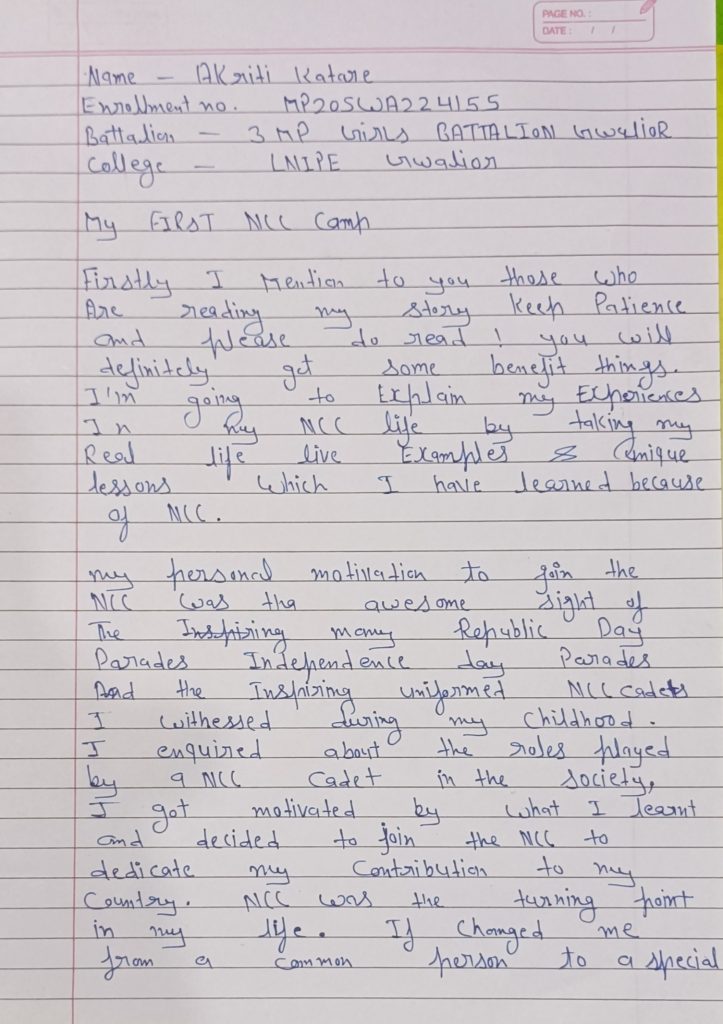 PAGE NO. :
DATE : / /
Name - Akriti Katare
Enrollment no. MP20SWA224155
Battalion - 3 MP GIRLS BATTALION GwalioR
College - LNIPE Gwalior
My FIRST NCC Camp
Firstly I Mention to you those who
Are reading my story keep Patience
and please do read ! you will
definitely get some benefit things.
I'm going to Explain my Experiences
In my NCC life by taking my
Real life live Examples & Unique
lessons which I have learned because
of NCC.
my personal motivation to join the
NCC was tha awesome sight of
The Inspiring many Republic Day
Parades Independence day Parades
And the Inspiring uniformed NCC cadets
I withessed during my childhood.
I enquired about the roles played
by a NCC Cadet in the society,
I got motivated by what I learnt
and decided to join the NCC to
dedicate my Contribution to my
Country. NCC was the turning point
in my life. If changed me
from a common person to a special